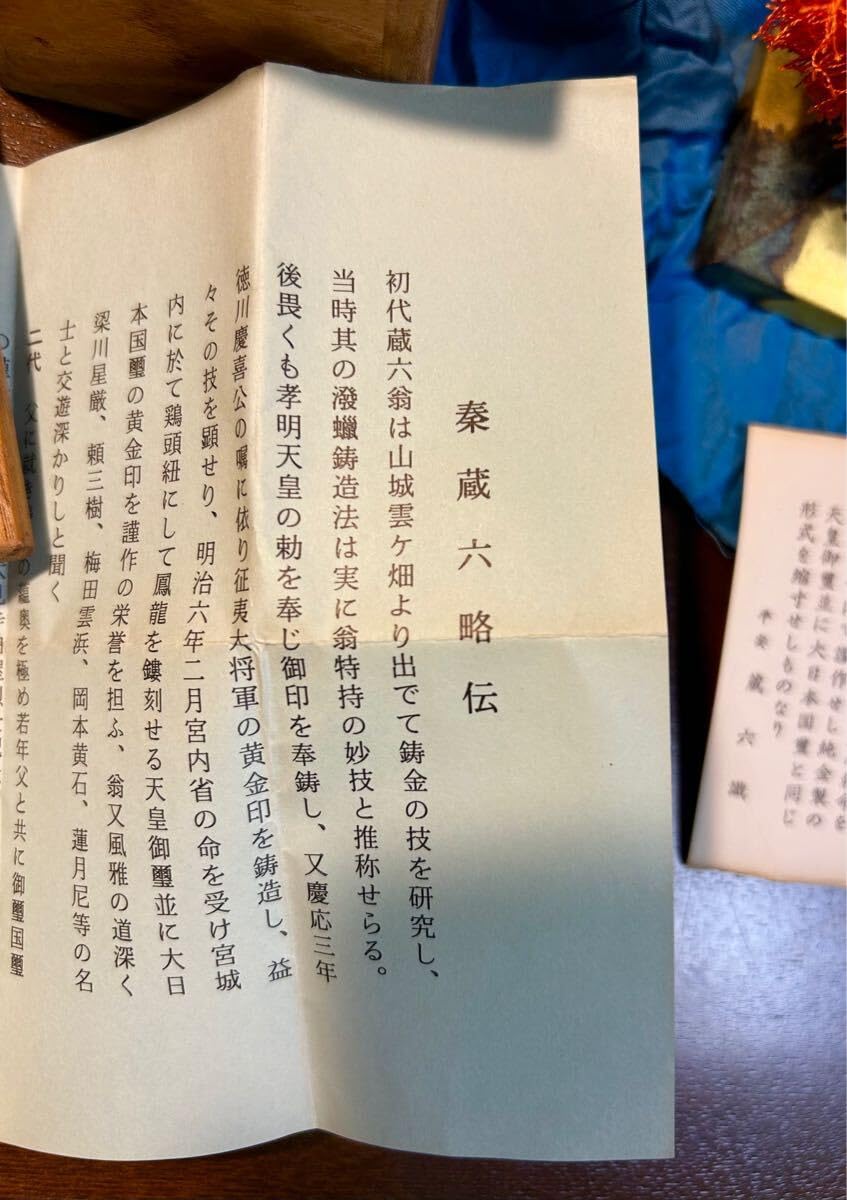 秦蔵六略伝
初代蔵六翁は山城雲ケ畑より出でて鋳金の技を研究し、
当時其の潑蠟鋳造法は実に翁特持の妙技と推称せらる。
後畏くも孝明天皇の勅を奉じ御印を奉鋳し、又慶応三年
徳川慶喜公の嘱に依り征夷大将軍の黄金印を鋳造し、益
々その技を顕せり、明治六年二月宮内省の命を受け宮城
内に於て鶏頭紐にして鳳龍を鏤刻せる天皇御璽並に大日
本国璽の黄金印を謹作の栄誉を担ふ、翁又風雅の道深く
梁川星厳、頼三樹、梅田雲浜、岡本黄石、蓮月尼等の名
士と交遊深かりしと聞く
二代 父に就き の蘊奥を極め若年父と共に御璽国璽
せし純金製の
天皇御璽並に大日本国璽と同じ
形式を縮寸せしものなり
平安 蔵六識